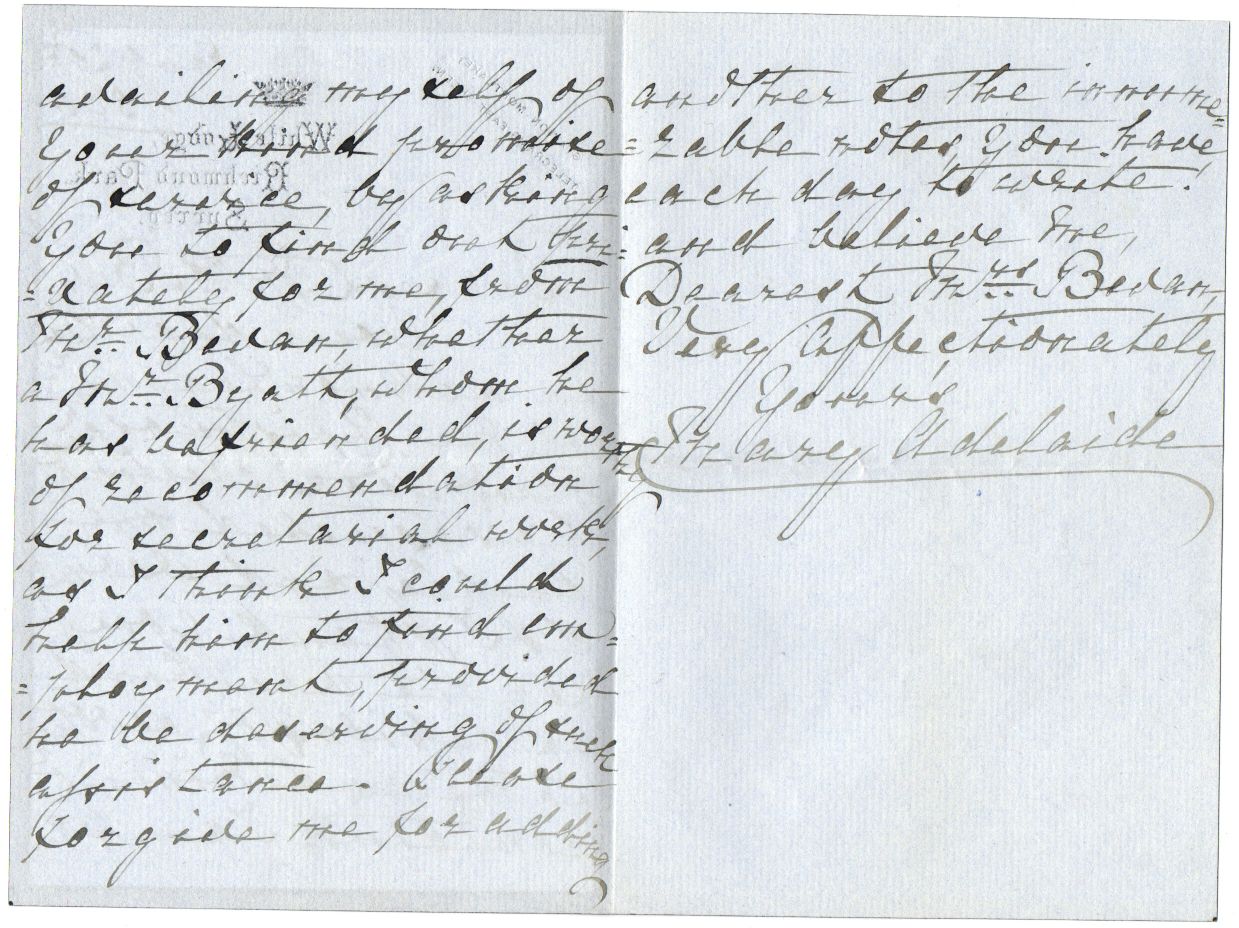 availing myself of
your kind promise
of service, by asking
you to find out pri-
=vately, for me, from
Mr. Bevan, whether
a Mr. Byatt, whom he
has befriended, is worthy
of recommendation
for secretarial work,
as I think I could
help him to find em=
=ployment, provided
he be deserving of such
assistance. Please
forgive me for adding
another to the innume=
=rable notes, you have
each day to write!
and believe me,
Dearest Mrs. Bevan,
Very Affectionately
Yours
Mary Adelaide
White Lodge
Richmond Park
Surrey